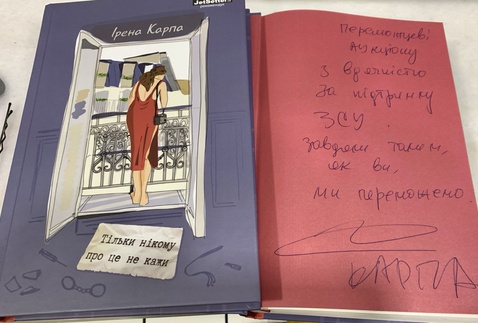 JetSetters
Ірена Карпа
Тільки нікому
про це не кажи
Переможцеві
аукціону
з вдячністю
за підтримку
ЗСУ.
Завдяки таким,
як ви,
ми переможемо.
КАРПА